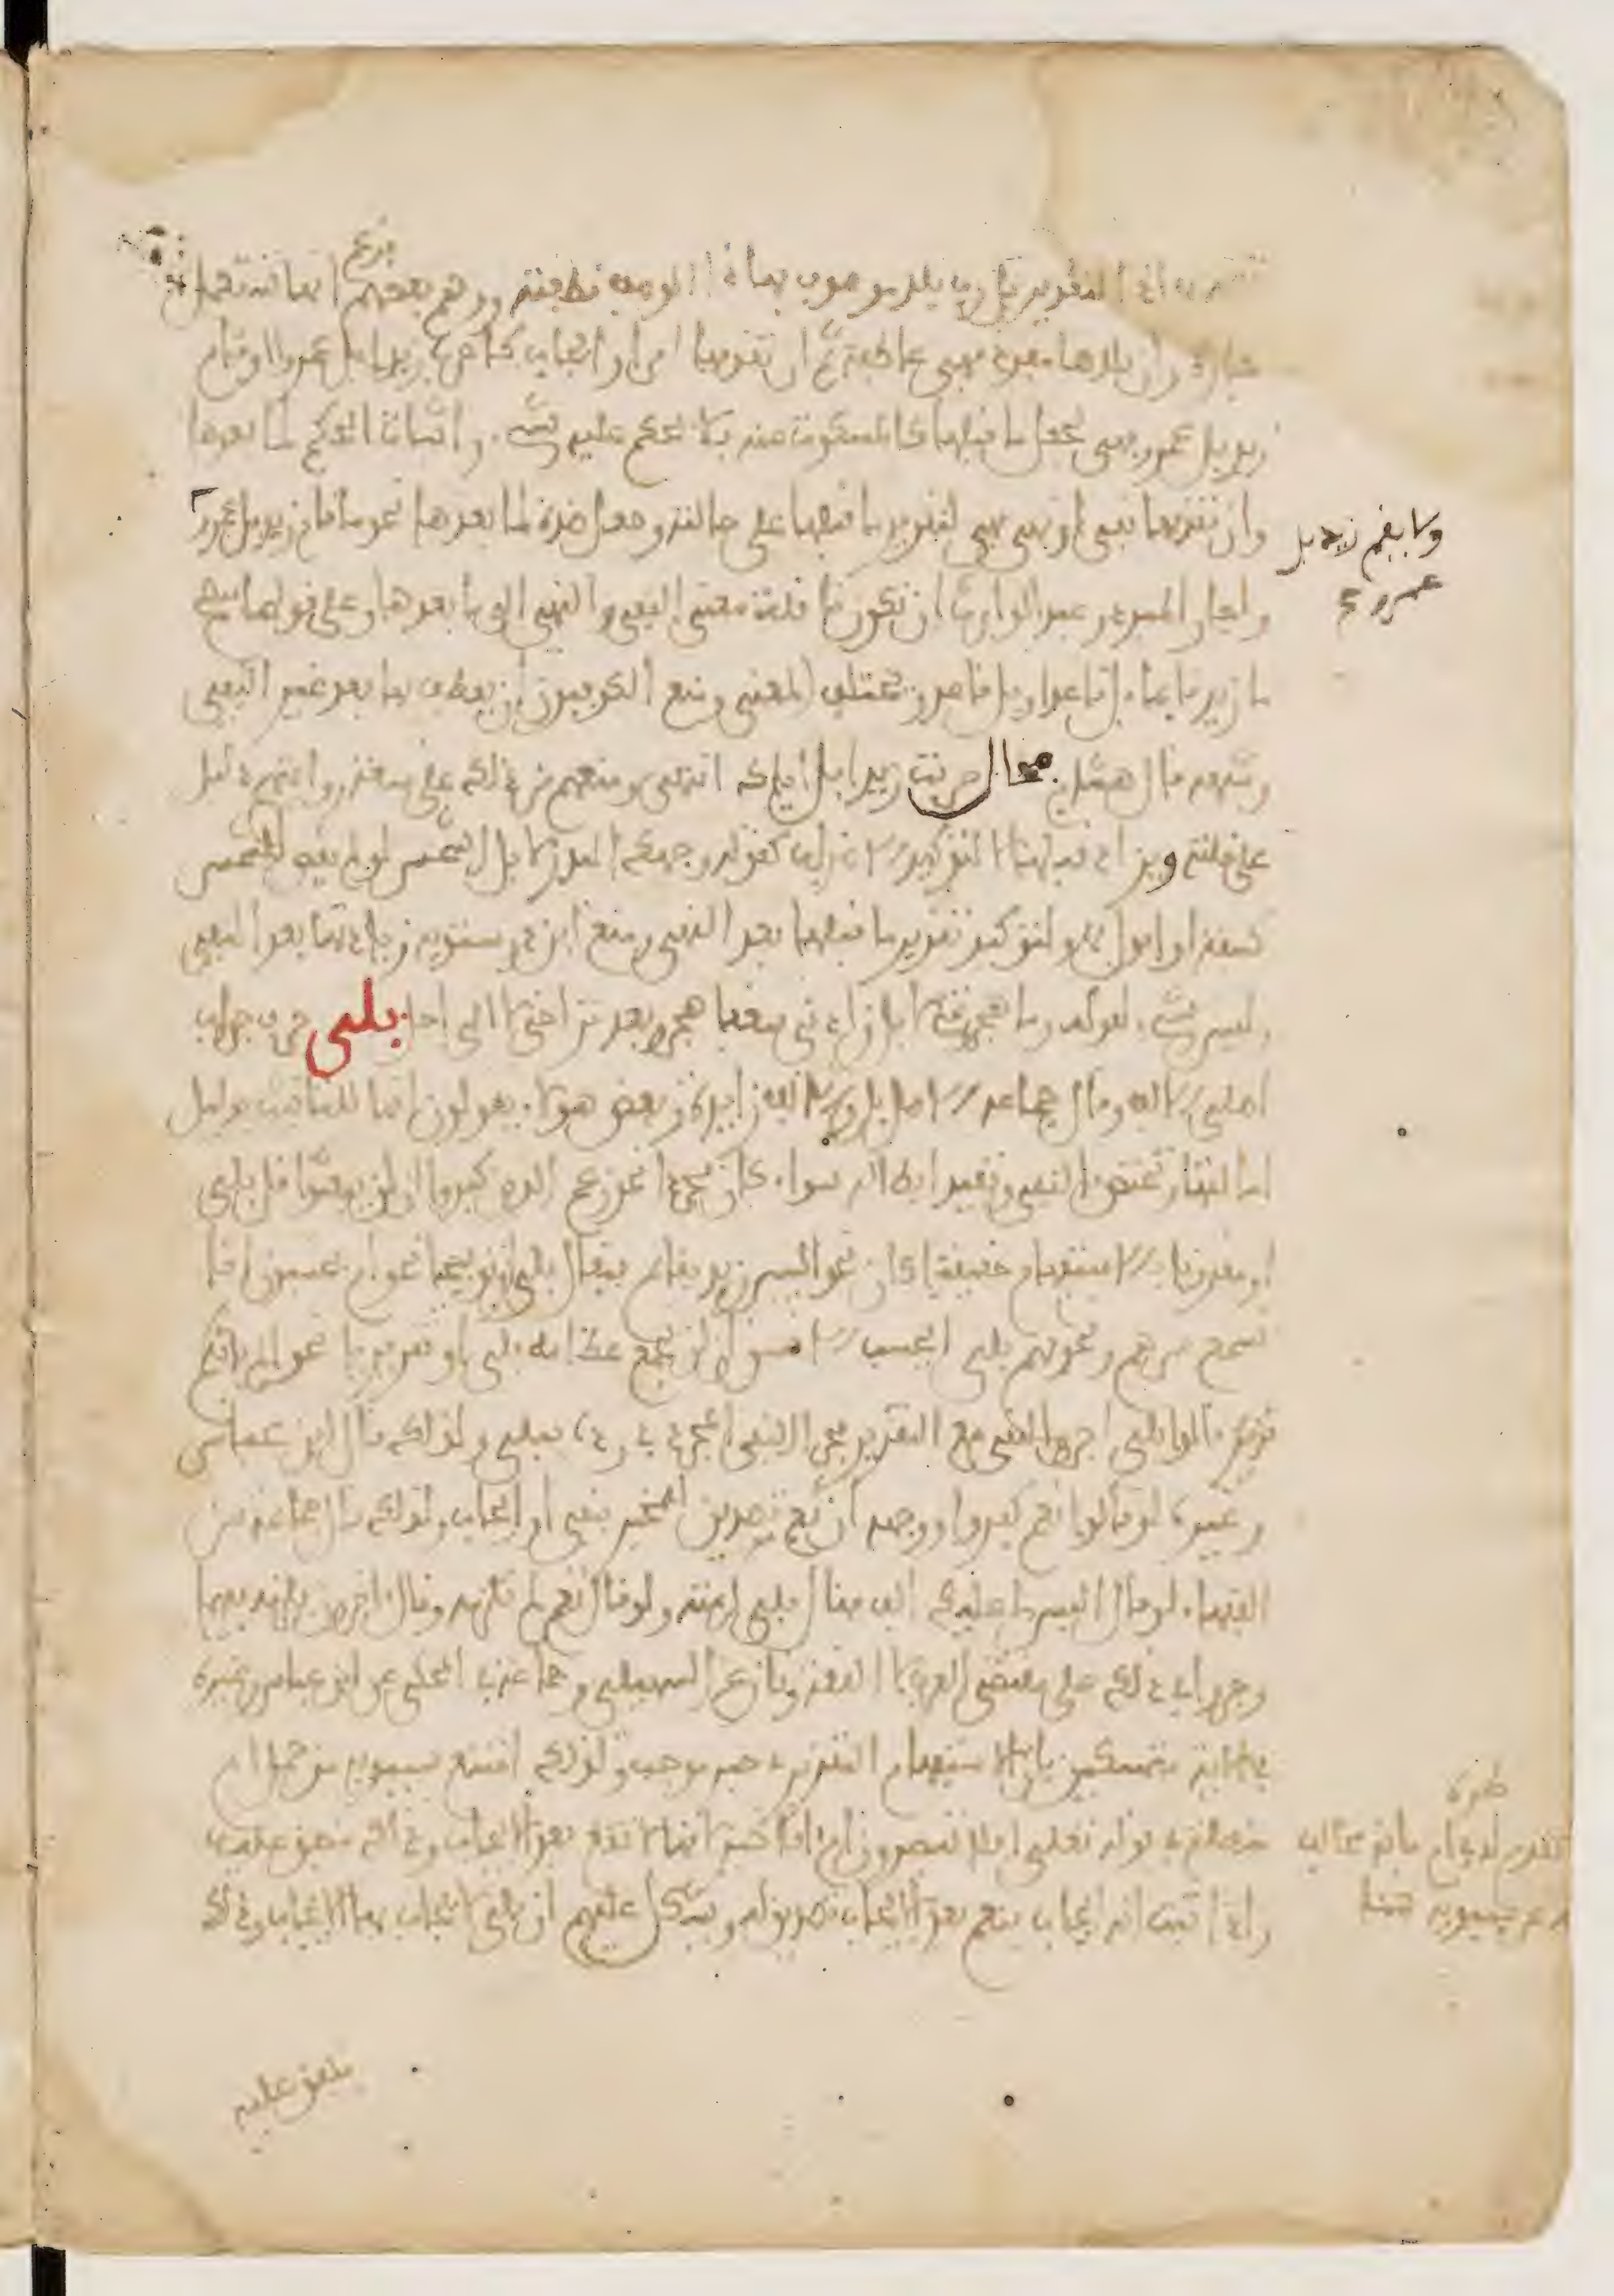 اذ التقدير بل يلد موصوف بهذا الوصف قطعته ووهم بعضهم فزعم انها تستعمل
جارة وان تلاها مفرد فهي عاطفة ثم ان تقدمها امر او ايجاب كاضرب زيدا بل عمرا او قام
زيد بل عمرو فهي تجعل ما قبلها كالمسكوت عنه فلا يحكم عليه بشيء واثبات الحكم لما بعدها
وان تقدمها نفي او نهي فهي لتقرير ما قبلها على حالته وجعل ضده لما بعدها نحو ما قام زيد بل عمرو
ولا يقم زيد بل
عمرو
واجاز المبرد وعبد الوارث ان تكون ناقلة معنى النفي والنهي الى ما بعدها وعلى قولهما يصح
ما زيد قائما بل قاعدا وبل قاعد ويختلف المعنى ومنع الكوفيون ان يعطف بها بعد غير النفي
وشبهه قال هشام محال ضربت زيدا بل اياك انتهى ومنعهم من ذلك على سعة روايتهم دليل
على قلته وتزاد قبلها لا لتوكيد الاضراب كقوله وجهك البدر لا بل الشمس لو لم يقض للشمس
كسفة او افول ولتوكيد تقرير ما قبلها بعد النفي ومنع ابن درستويه زيادتها بعد النفي
وليس بشيء لقوله وما هجرتك لا بل زادني شغفا هجر وبعد تراخى لا الى اجل بلى حرف جواب
اصلي الالف وقال جماعة الاصل بل والالف زايدة وبعض هؤلاء يقولون انها للتانيث بدليل
امالتها وتختص بالنفي وتفيد ابطاله سواء كان مجردا نحو زعم الذين كفروا ان لن يبعثوا قل بلى
او مقرونا بالاستفهام حقيقيا كان نحو اليس زيد بقائم فيقال بلى او توبيخيا نحو ام يحسبون انا لا
نسمع سرهم ونجويهم بلى ايحسب الانسان ان لن نجمع عظامه بلى او تقريريا نحو الم ياتكم
نذير قالوا بلى اجروا النفي مع التقرير مجرى النفي المجرد في رده ببلى ولذلك قال ابن عباس
وغيره لو قالوا نعم كفروا ووجهه ان نعم تصديق للمخبر بنفي او ايجاب ولذلك قال جماعة من
الفقهاء لو قال اليس لي عليك الف فقال بلى لزمته ولو قال نعم لم تلزمه وقال اخرون يلزمه فيهما
وجروا في ذلك على مقتضى العرف لا اللغة ونازع السهيلي وجماعة في المحكي عن ابن عباس وغيره
في الاية متمسكين بان الاستفهام التقريري خبر موجب ولذلك امتنع سيبويه من جعل ام
متصلة في قوله تعالى افلا تبصرون ام انا خير لانها لا تقع بعد الايجاب
طرة
تقدم له في ام مانه
عن سيبويه هنا
واذا ثبت انه ايجاب فنعم بعد الايجاب تصديق له ويشكل عليهم ان بلى لا يجاب بها الايجاب وذلك
متفق عليه